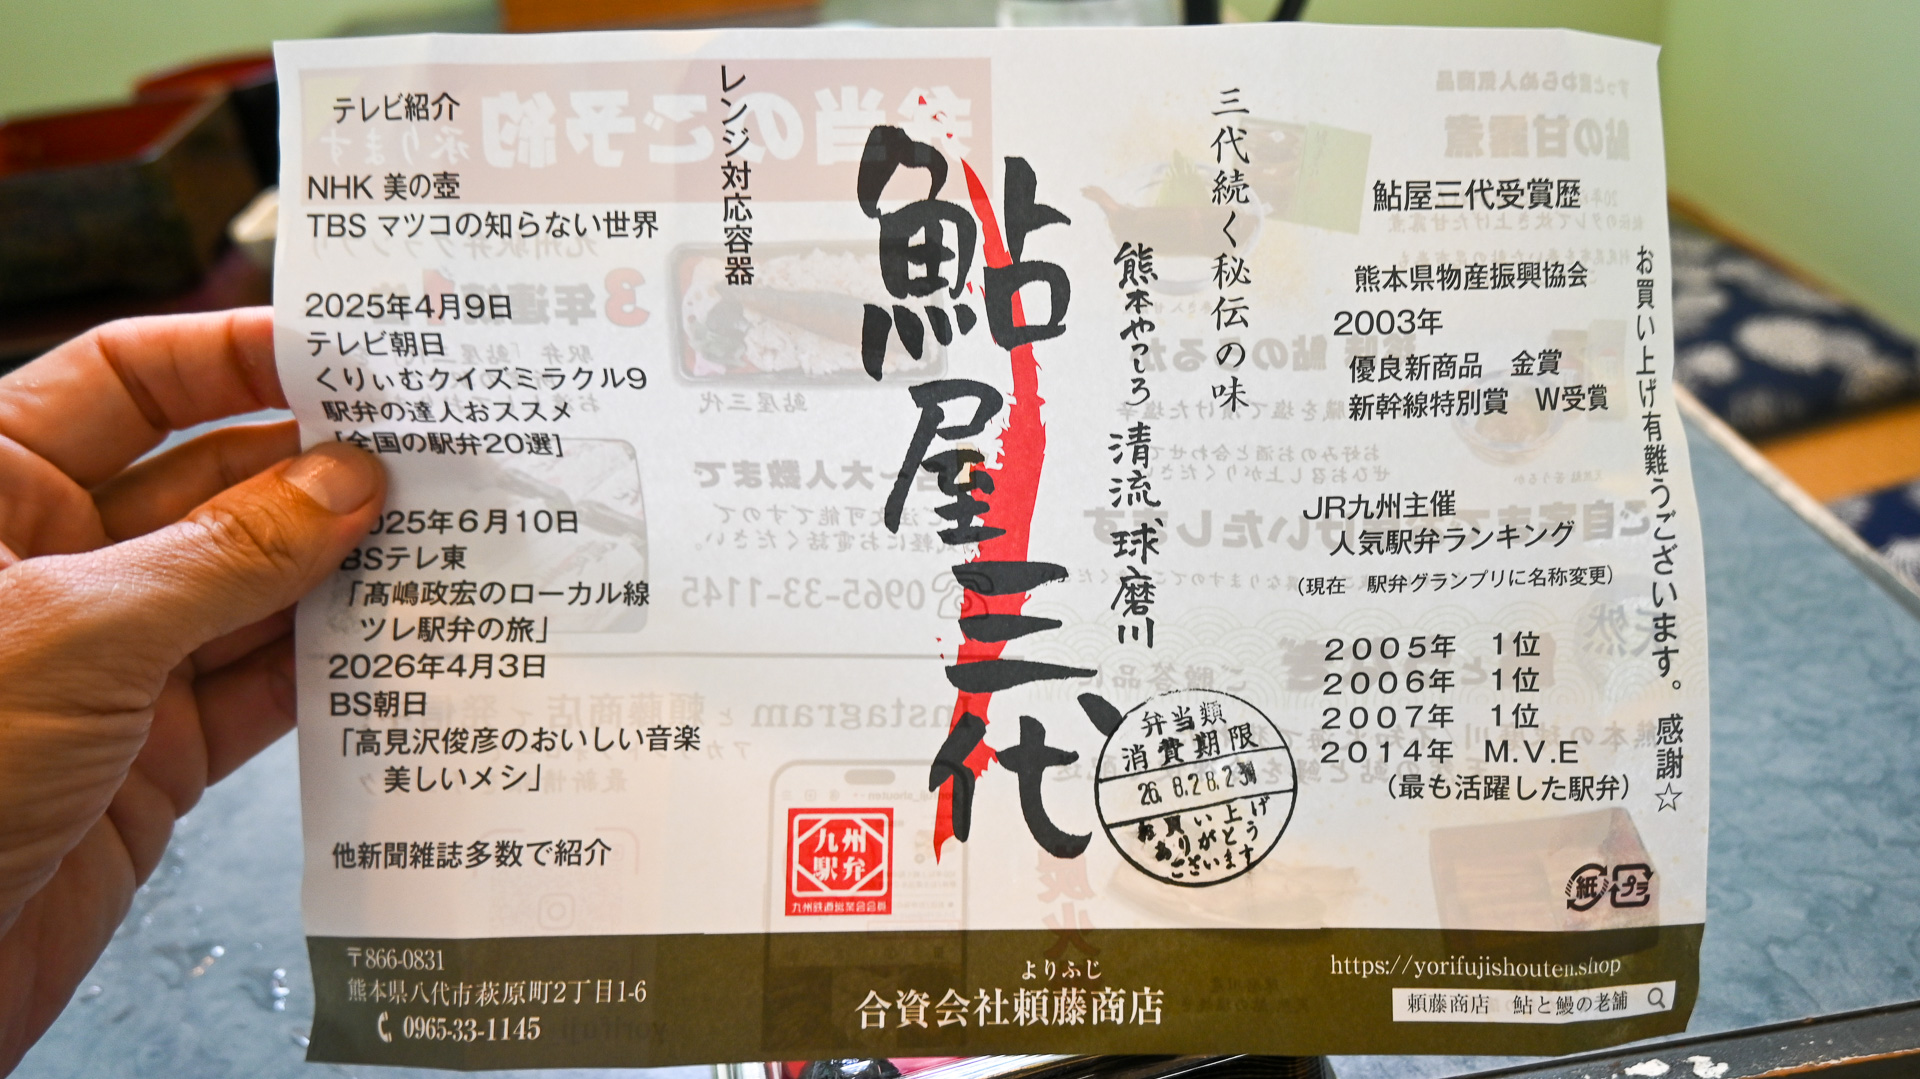 テレビ紹介
NHK 美の壺
TBS マツコの知らない世界
2025年4月9日
テレビ朝日
くりぃむクイズミラクル9
駅弁の達人おススメ
「全国の駅弁20選]
025年6月10日
BSテレ東
「髙嶋政宏のローカル線
ツレ駅弁の旅」
2026年4月3日
BS朝日
「高見沢俊彦のおいしい音楽
美しいメシ」
他新聞雑誌多数で紹介
レンジ対応容器
鮎屋三代
九州
駅弁
九州鉄道営業会会員
熊本やつしろ 清流 球磨川
三代続く秘伝の味
弁当類
消費期限
26. 8.28.
お買い上げ
ありがとう
ございます
鮎屋三代受賞歴
熊本県物産振興協会
2003年
優良新商品 金賞
新幹線特別賞 W受賞
JR九州主催
人気駅弁ランキング
(現在 駅弁グランプリに名称変更)
2005年 1位
2006年 1位
2007年 1位
2014年 M.V.E
(最も活躍した駅弁)
お買い上げ有難うございます。感謝☆
紙
プラ
〒866-0831
熊本県八代市萩原町2丁目1-6
0965-33-1145
よりふじ
合資会社頼藤商店
https://yorifujishouten.shop
頼藤商店 鮎と鰻の老舗